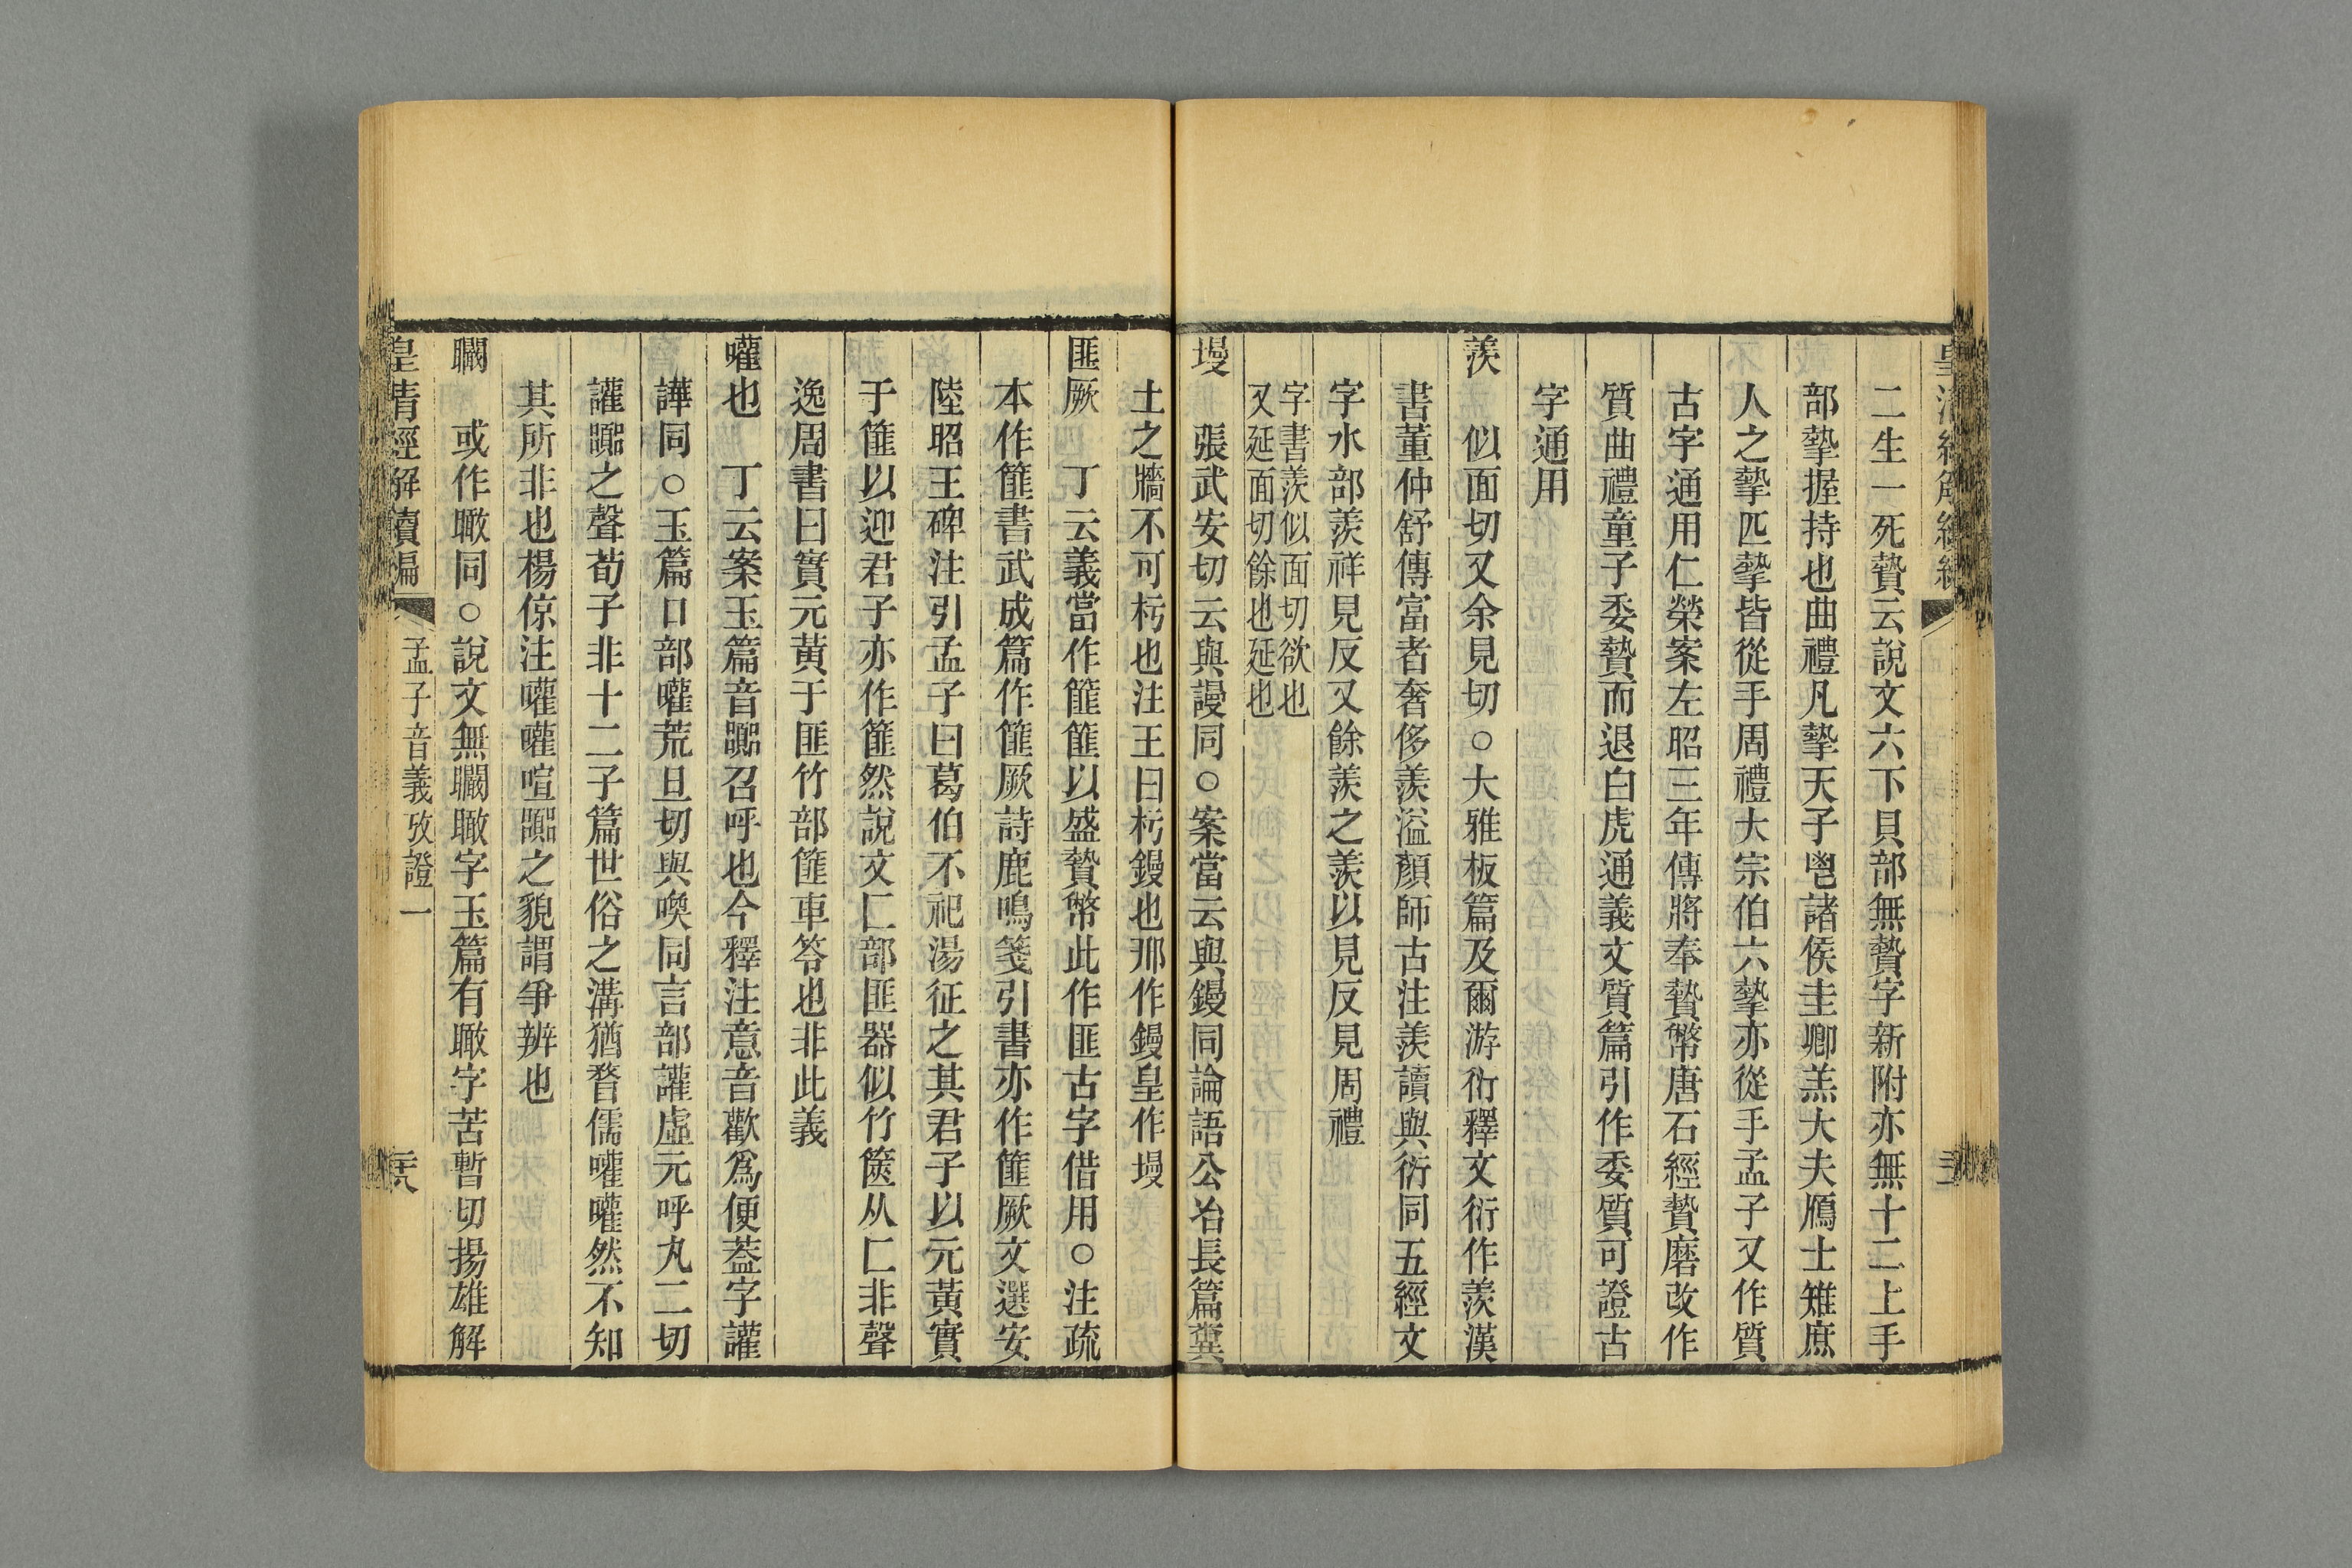 二生一死贄云說文六下貝部無贄字新附亦無十二上手
部摯握持也曲禮凡摯天子鬯諸侯圭卿羔大夫鴈士雉庶
人之摯匹摯皆從手周禮大宗伯六摯亦從手孟子又作質
古字通用仁榮案左昭三年傳將奉贄幣唐石經贄磨改作
質曲禮童子委贄而退白虎通義文質篇引作委質可證古
字通用
羨　似面切又余見切○大雅板篇及爾游衍釋文衍作羨漢
書董仲舒傳富者奢侈羨溢顏師古注羨讀與衍同五經文
字水部羨祥見反又餘羨之羨以見反見周禮
字書羨似面切欲也
又延面切餘也延也
墁　張武安切云與謾同○案當云與鏝同論語公冶長篇糞
土之牆不可杇也注王曰杇鏝也邢作鏝皇作墁
匪厥　丁云義當作篚篚以盛贄幣此作匪古字借用○注疏
本作篚書武成篇作篚厥詩鹿鳴箋引書亦作篚厥文選安
陸昭王碑注引孟子曰葛伯不祀湯征之其君子以元黃實
于篚以迎君子亦作篚然說文匚部匪器似竹篋从匚非聲
逸周書曰實元黃于匪竹部篚車笭也非此義
嚾也　丁云案玉篇音嚻召呼也今釋注意音歡爲便葢字讙
譁同○玉篇口部嚾荒旦切與喚同言部讙虛元呼丸二切
讙嚻之聲荀子非十二子篇世俗之溝猶瞀儒嚾嚾然不知
其所非也楊倞注嚾嚾喧嚻之貌謂爭辨也
矙　或作瞰同○說文無矙瞰字玉篇有瞰字苦暫切揚雄解
皇清經解續編
孟子音義攷證一